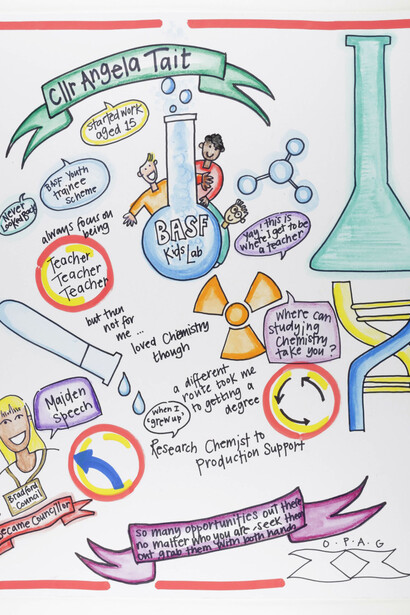 Cllr Angela Tait
started work
aged 15
BASF Youth
trainee
scheme
Never
Looked Back
always focus on
being
Teacher
Teacher
Teacher
BASF
Kids Lab
Yay! this is
where I get to be
a teacher
but then
not for
me ...
loved Chemistry
though
where can
studying
Chemistry
take you?
a different
route took me
to getting a
degree
when I
grew up
Research Chemist to
Production Support
Maiden
Speech
Bradford
Council
Became Councillor
so many opportunities out there
no matter who you are - seek them
out grab them with both hands
O.P.A.G